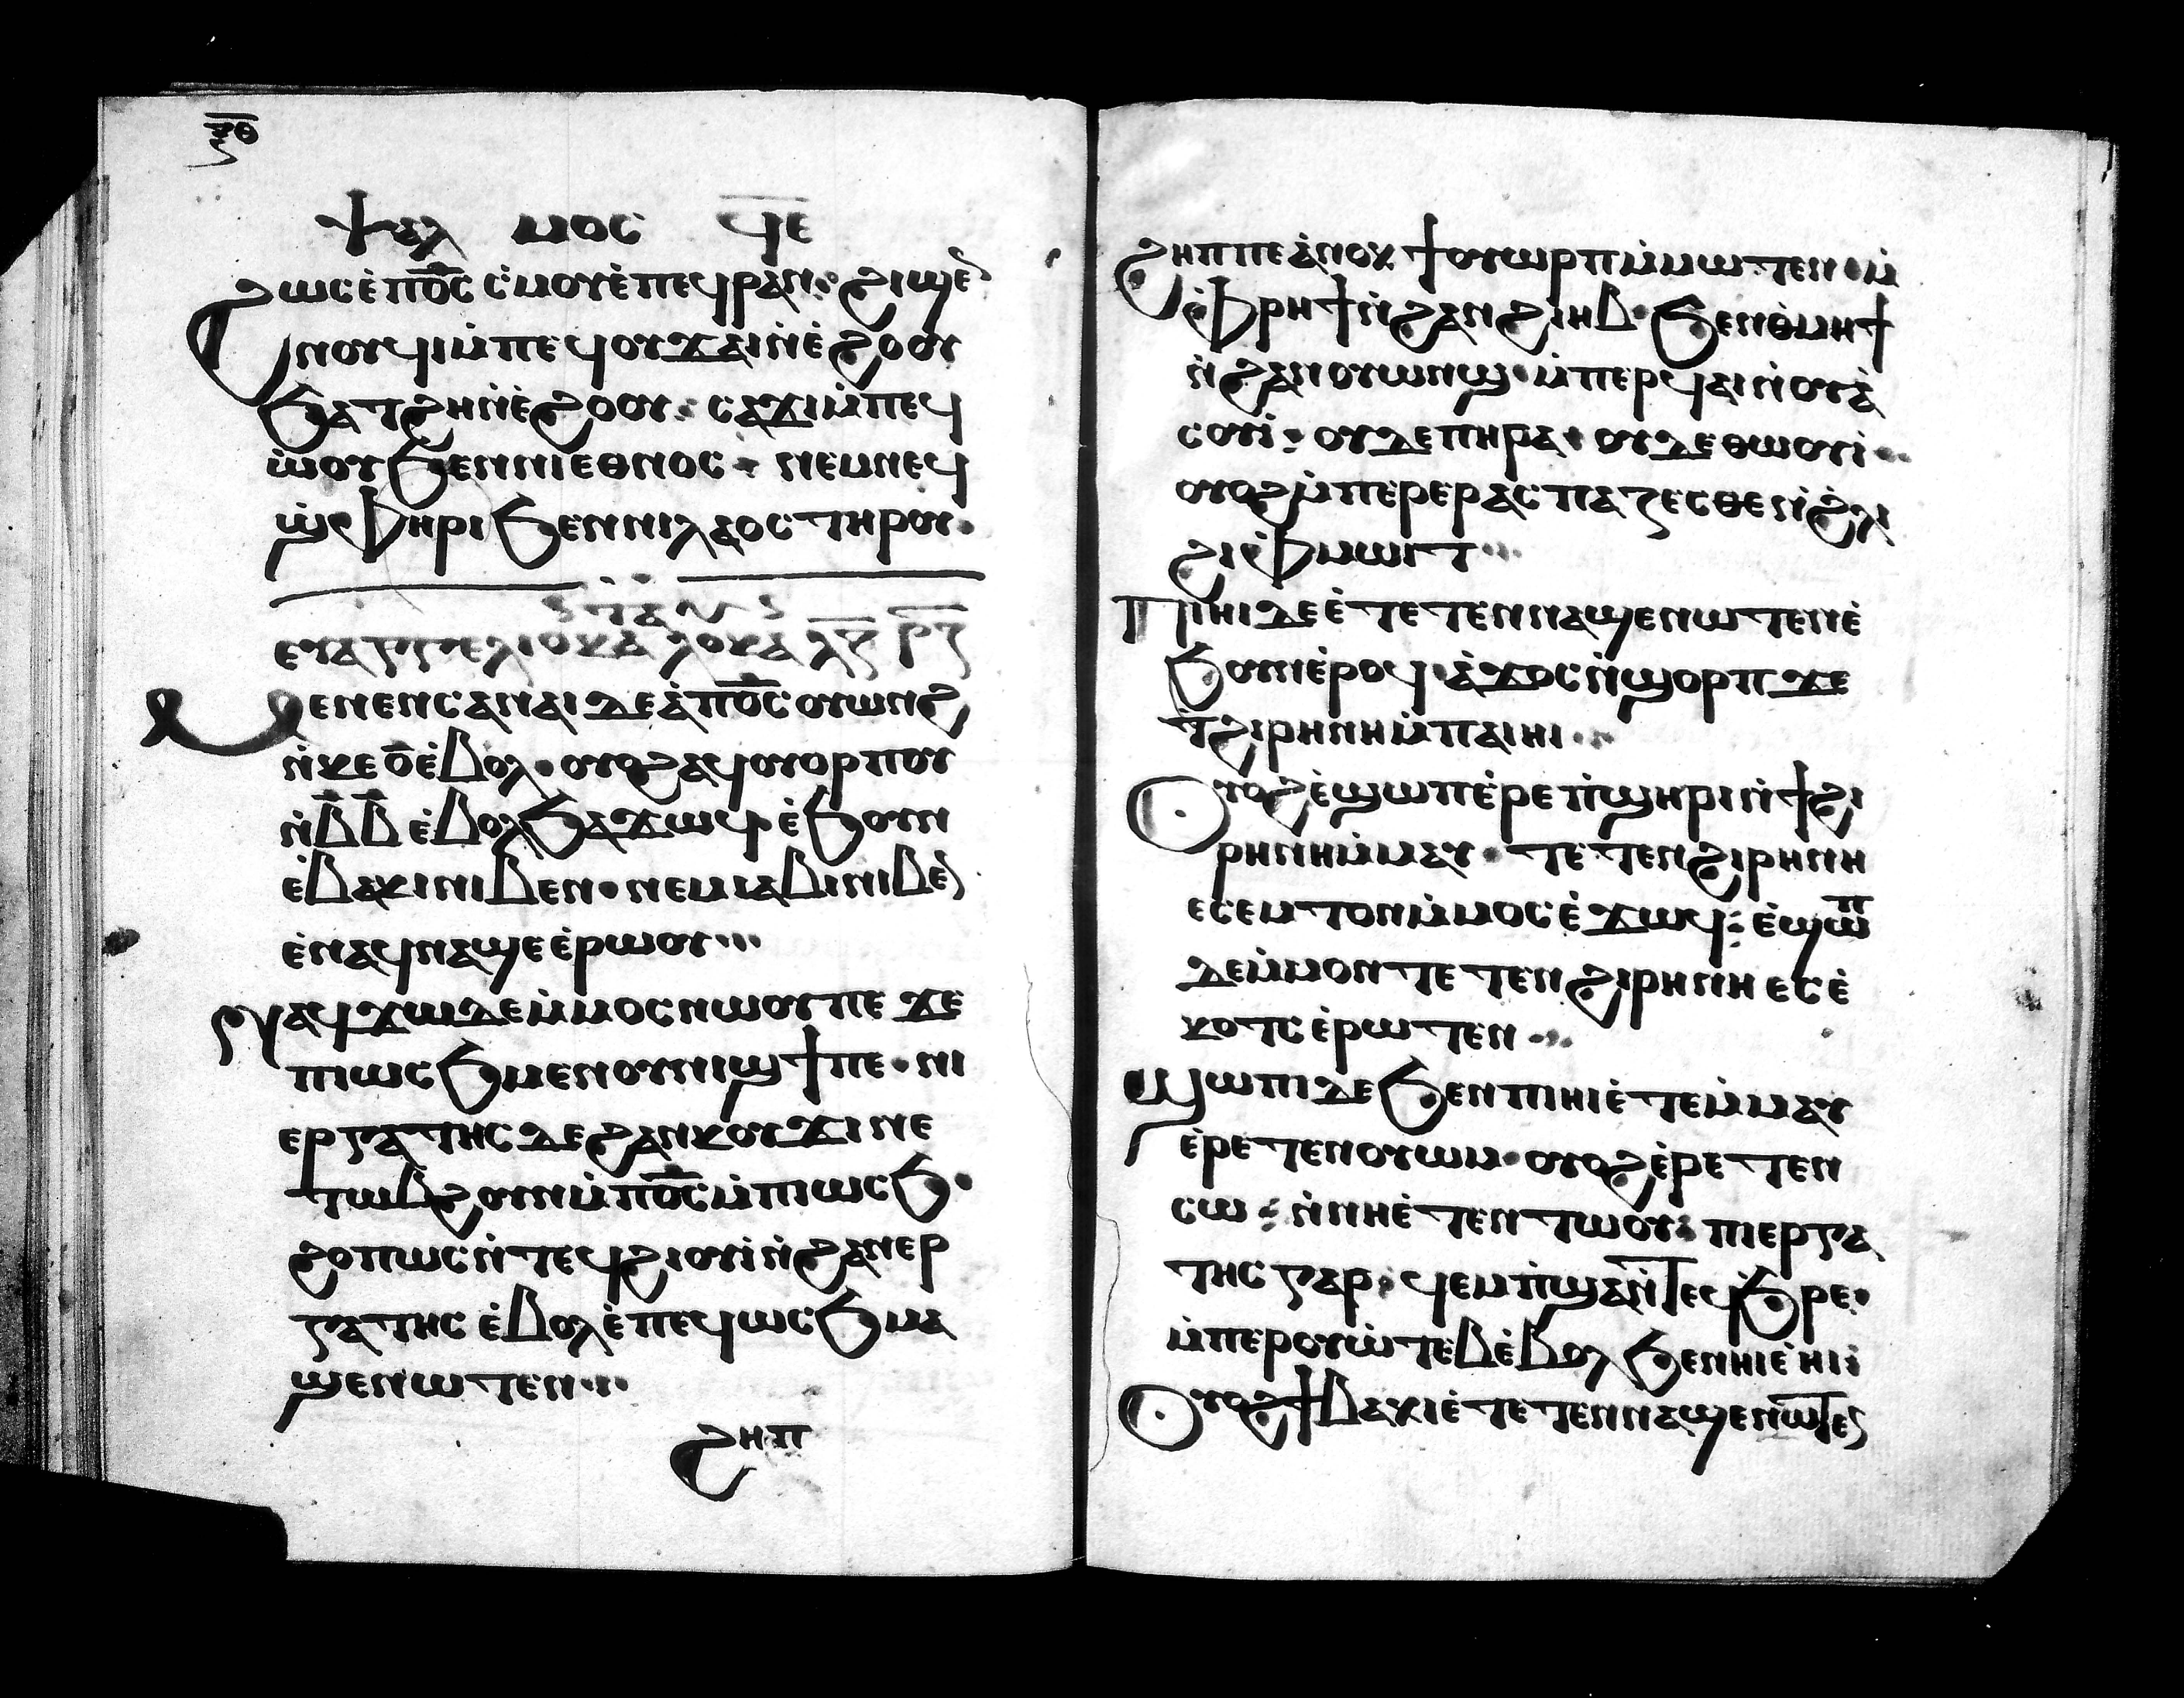 ⲝ̅ⲑ̅
ⲯⲁⲗ ⲙⲟⲥ ϥ̅ⲉ̅
ϩⲱⲥ ⲉ̀ⲡⲟ̅ⲥ̅ ⲥ̀ⲙⲟⲩ ⲉ̀ⲡⲉϥⲣⲁⲛ: ϩⲓϣⲉ
ⲛⲟⲩϥⲓ ⲙ̀ⲡⲉϥⲟⲩϫⲁⲓ ⲛ̀ⲉ̀ϩⲟⲟⲩ
ϧⲁⲧϩⲏ ⲛ̀ⲉ̀ϩⲟⲟⲩ: ⲥⲁϫⲓ ⲙ̀ⲡⲉϥ
ⲱ̀ⲟⲩ ϧⲉⲛ ⲛⲓⲉⲑⲛⲟⲥ · ⲛⲉⲙ ⲛⲉϥ
ϣ̀ⲫⲏⲣⲓ ϧⲉⲛ ⲛⲓⲗⲁⲟⲥ ⲧⲏⲣⲟⲩ·
ⲉⲩⲁⲅⲅⲉⲗⲓⲟ ⲕⲁ ⲗⲟⲩⲕⲁ ⲗ̅ⲍ̅ ⲣ̅ⲍ̅
ⲙⲉⲛⲉⲛⲥⲁ ⲛⲁⲓ ⲇⲉ ⲁ̀ⲡⲟ̅ⲥ̅ ⲟⲩⲱⲛϩ
ⲛ̀ⲕⲉ ⲟ̅ ⲉ̀ⲃⲟⲗ · ⲟⲩⲟϩ ⲁϥⲟⲩⲟⲣⲡⲟⲩ
ⲛ̀ⲃ̅ⲃ̅ ⲉ̀ⲃⲟⲗ ϧⲁϫⲱϥ · ⲉ̀ϧⲟⲩⲛ
ⲉ̀ⲃⲁⲕⲓ ⲛⲓⲃⲉⲛ · ⲛⲉⲙ ⲙⲁⲃⲓ ⲛⲓⲃⲉ
ⲉ̀ⲛⲁϥⲛⲁϣⲉ ⲉ̀ⲣⲱⲟⲩ···
ⲛⲁϥϫⲱ ⲇⲉ ⲙ̀ⲙⲟⲥ ⲛⲱⲟⲩ ⲡⲉ ϫⲉ
ⲡⲓⲱⲥϧ ⲙⲉⲛ ⲟⲩⲛⲓϣϯ ⲡⲉ · ⲛⲓ
ⲉⲣⲅⲁⲧⲏⲥ ⲇⲉ ϩⲁⲛⲕⲟⲩϫⲓ ⲛⲉ
ⲧⲱⲃϩ ⲟⲩⲛ ⲙ̀ⲡⲟ̅ⲥ̅ ⲙ̀ⲡⲓⲱⲥϧ·
ϩⲟⲡⲱⲥ ⲛ̀ⲧⲉϥϩⲓⲟⲩⲓ̀ ⲛ̀ϩⲁⲛⲉⲣ
ⲅⲁⲧⲏⲥ ⲉ̀ⲃⲟⲗ ⲉ̀ⲡⲉϥⲱⲥϧ ⲙⲁ
ϣⲉⲛⲱⲧⲉⲛ···
ϩⲏⲡ
ϩⲏⲡⲡⲉ ⲁ̀ⲛⲟⲕ ϯⲟⲩⲱⲣⲡ ⲙ̀ⲙⲱⲧⲉⲛ · ⲙ̀
ⲫⲣⲏϯ ⲛ̀ϩⲁⲛϩⲓⲏⲃ · ϧⲉⲛ ⲑ̀ⲙⲏϯ
ⲛ̀ϩⲁⲛⲟⲩⲱⲛϣ · ⲙ̀ⲡⲉⲣϥⲁⲓ ⲛ̀ⲟⲩⲁ̀
ⲥⲟⲩⲓ̀: ⲟⲩⲇⲉ ⲡⲏⲣⲁ · ⲟⲩⲇⲉ ⲑⲱⲟⲩⲓ̀··
ⲟⲩⲟϩ ⲙ̀ⲡⲉⲣⲉⲣⲁⲥⲡⲁⲍⲉⲥⲑⲉ ⲛ̀ϩ̀ⲗⲓ
ϩⲓ ⲫ̀ⲙⲱⲓⲧ···
ⲡⲓⲏⲓ ⲇⲉ ⲉ̀ⲧⲉⲧⲉⲛⲛⲁϣⲉⲛⲱⲧⲉⲛ ⲉ̀
ϧⲟⲩⲛ ⲉ̀ⲣⲟϥ ⲁ̀ϫⲟⲥ ⲛ̀ϣⲟⲣⲡ ϫⲉ
ⲧ̀ϩⲓⲣⲏⲛⲏ ⲙ̀ⲡⲁⲓⲏⲓ··
ⲟⲩⲟϩ ⲉ̀ϣⲱⲡ ⲉ̀ⲣⲉ ⲡ̀ϣⲏⲣⲓ ⲛ̀ϯϩⲓ
ⲣⲏⲛⲏ ⲙ̀ⲙⲁⲩ · ⲧⲉⲧⲉⲛϩⲓⲣⲏⲛⲏ
ⲉⲥⲉⲙⲧⲟⲛ ⲙ̀ⲙⲟⲥ ⲉ̀ϫⲱϥ: ⲉ̀ϣⲱⲡ
ⲇⲉ ⲙ̀ⲙⲟⲛ ⲧⲉⲧⲉⲛϩⲓⲣⲏⲛⲏ ⲉⲥⲉ̀
ⲕⲟⲧⲥ ⲉ̀ⲣⲱⲧⲉⲛ···
ϣⲱⲡⲓ ⲇⲉ ϧⲉⲛ ⲡⲓⲏⲓ ⲉ̀ⲧⲉⲙ̀ⲙⲁⲩ
ⲉ̀ⲣⲉⲧⲉⲛⲟⲩⲱⲙ · ⲟⲩⲟϩ ⲉ̀ⲣⲉⲧⲉⲛ
ⲥⲱ: ⲛ̀ⲛⲏⲉ̀ⲧⲉⲛⲧⲱⲟⲩ: ⲡⲓⲉⲣⲅⲁ
ⲧⲏⲥ ⲅⲁⲣ · ϥⲉⲙⲡ̀ϣⲁ ⲛ̀ⲧⲉϥϧ̀ⲣⲉ·
ⲙ̀ⲡⲉⲣⲟⲩⲱ̀ⲧⲉⲃ ⲉ̀ⲃⲟⲗ ϧⲉⲛ ⲏⲓ ⲉ̀ⲏⲓ:
ⲟⲩⲟϩ ϯⲃⲁⲕⲓ ⲉ̀ⲧⲉⲧⲉⲛⲛⲁϣⲉⲛⲱⲧⲉ